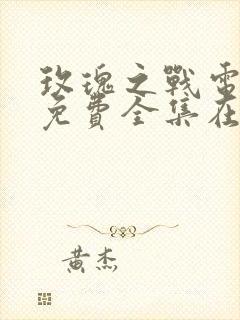 玫瑰之戰電
免費全集在
黃杰